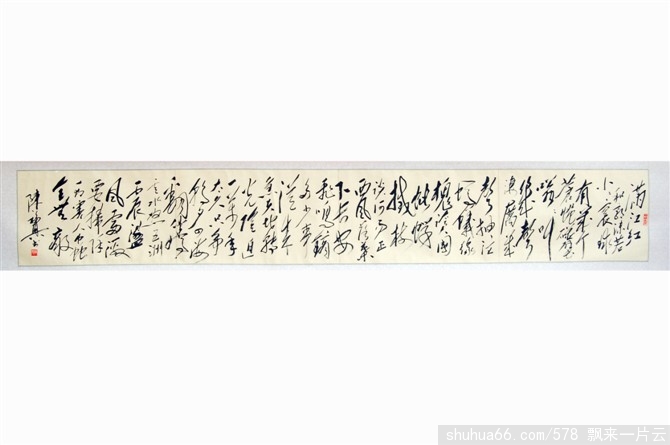 满江红
和郭沫若
小小寰球
有几个
苍蝇碰壁
嗡嗡叫
凄厉几
声抽泣
蚂蚁缘
槐夸大国
蚍蜉
撼树
谈何易正
西风落葉
下长安
飞鸣镝
多少事
从来
急天地转
光阴迫
一万年
太久只争
朝夕四海
翻腾
云水怒五洲
震荡
风雷激
要扫除
一切害人虫
全无敌
陈
shuhua66.com/578 飘来一片云